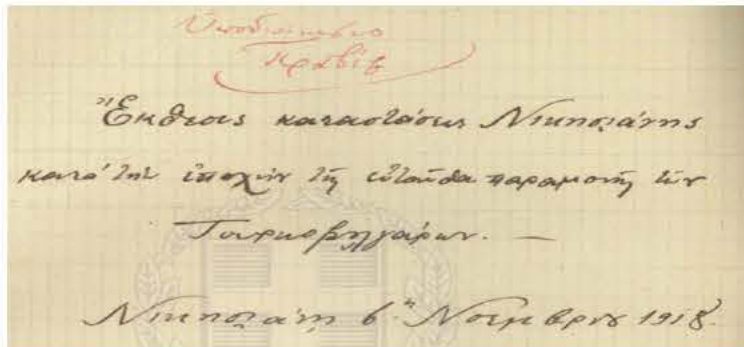 Υποδιοίκησις
Πραβίου
Ἔκθεσις καταστάσεως Νικησιάνης
κατὰ τὴν ἐποχὴν τῆς ἐνταῦθα παραμονῆς τῶν
Τουρκοβουλγάρων. —
Νικησιάνη 6η Νοεμβρίου 1918.